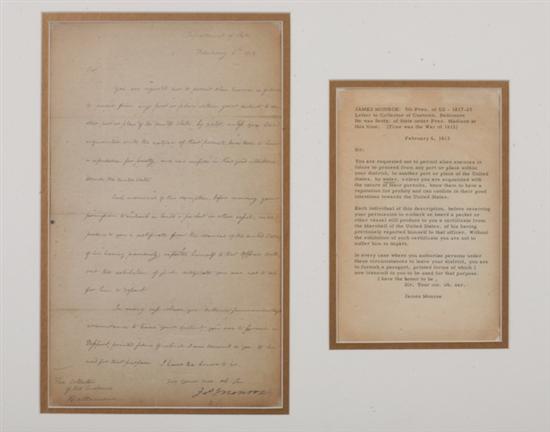 Department of State
February 6th 1813
Sir,
You are requested not to permit alien enemies in future
to proceed from any port or place within your district, to
by water, unless you
acquainted with the nature of their pursuits, know them to have
a reputation for probity, and can confide in their good intentions
towards the United States.
Each individual of this description, before receiving your
permission to embark on board a packet or other vessel, must
produce to you a certificate from the Marshal of the United States
of his having previously reported himself to that officer. With-
out the exhibition of such certificate you are not to
suffer him to depart.
In every case where you
circumstances to leave your district, you are to furnish a
Passport, printed forms of which I now transmit to you to be
used for that purpose. I have the honor to be,
Sir, your mo. ob. Ser.
Jas Monroe
The Collector
of the Customs
Baltimore
JAMES MONROE: 5th Pres. of US - 1817-25
Letter to Collector of Customs, Baltimore
He was Secty. of State under Pres. Madison at
this time. (Time was the War of 1812)
February 6, 1813
Sir:
You are requested not to permit alien enemies in
future to proceed from any port or place within
your district, to another port or place of the United
States, by water, unless you are acquainted with
the nature of their pursuits, know them to have a
reputation for probity and can confide in their good
intentions towards the United States.
Each individual of this description, before receiving
your permission to embark on board a packet or
other vessel will produce to you a certificate from
the Marshall of the United States, of his having
previously reported himself to that officer. Without
the exhibition of such certificate you are not to
suffer him to depart.
In every case where you authorize persons under
these circumstances to leave your district, you are
to furnish a passport, printed forms of which I
now transmit to you to be used for that purpose.
I have the honor to be,
Sir, Your mo. ob. ser.
James Monroe